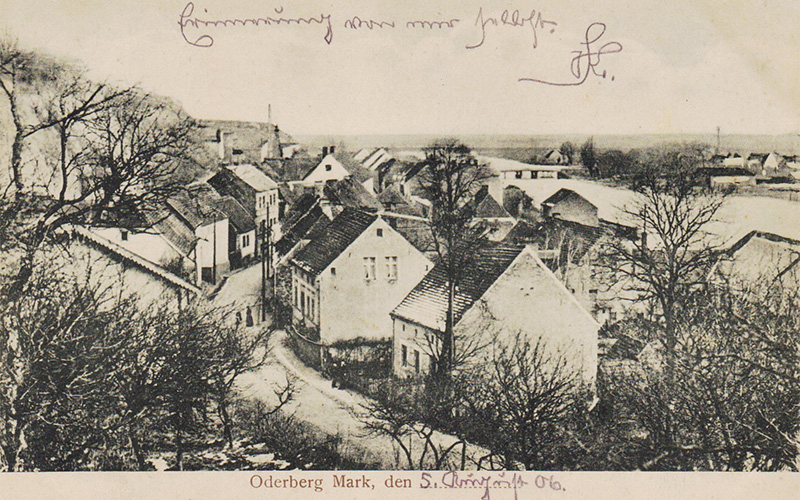 Erinnerung von mir selbst.
Oderberg Mark, den 5. August 06.